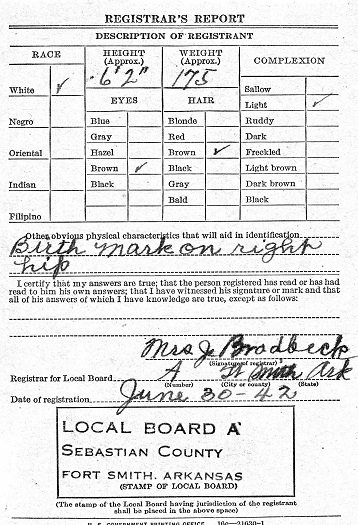 REGISTRAR'S REPORT
DESCRIPTION OF REGISTRANT
RACE
HEIGHT
(Approx.)
WEIGHT
(Approx.)
COMPLEXION
6'2"
175
White ✓
EYES
HAIR
Sallow
Light ✓
Negro
Blue
Blonde
Ruddy
Gray
Red
Dark
Oriental
Hazel
Brown ✓
Freckled
Brown ✓
Black
Light brown
Indian
Black
Gray
Dark brown
Bald
Black
Filipino
Other obvious physical characteristics that will aid in identification
Birth mark on right
hip
I certify that my answers are true; that the person registered has read or has had
read to him his own answers; that I have witnessed his signature or mark and that
all of his answers of which I have knowledge are true, except as follows:
Mrs J Bradbeck
(Signature of registrar)
Registrar for Local Board A Ft Smith Ark
(Number) (City or county) (State)
Date of registration June 30-42
LOCAL BOARD A
SEBASTIAN COUNTY
FORT SMITH, ARKANSAS
(STAMP OF LOCAL BOARD)
(The stamp of the Local Board having jurisdiction of the registrant
shall be placed in the above space)
U. S. GOVERNMENT PRINTING OFFICE 16—21630-1